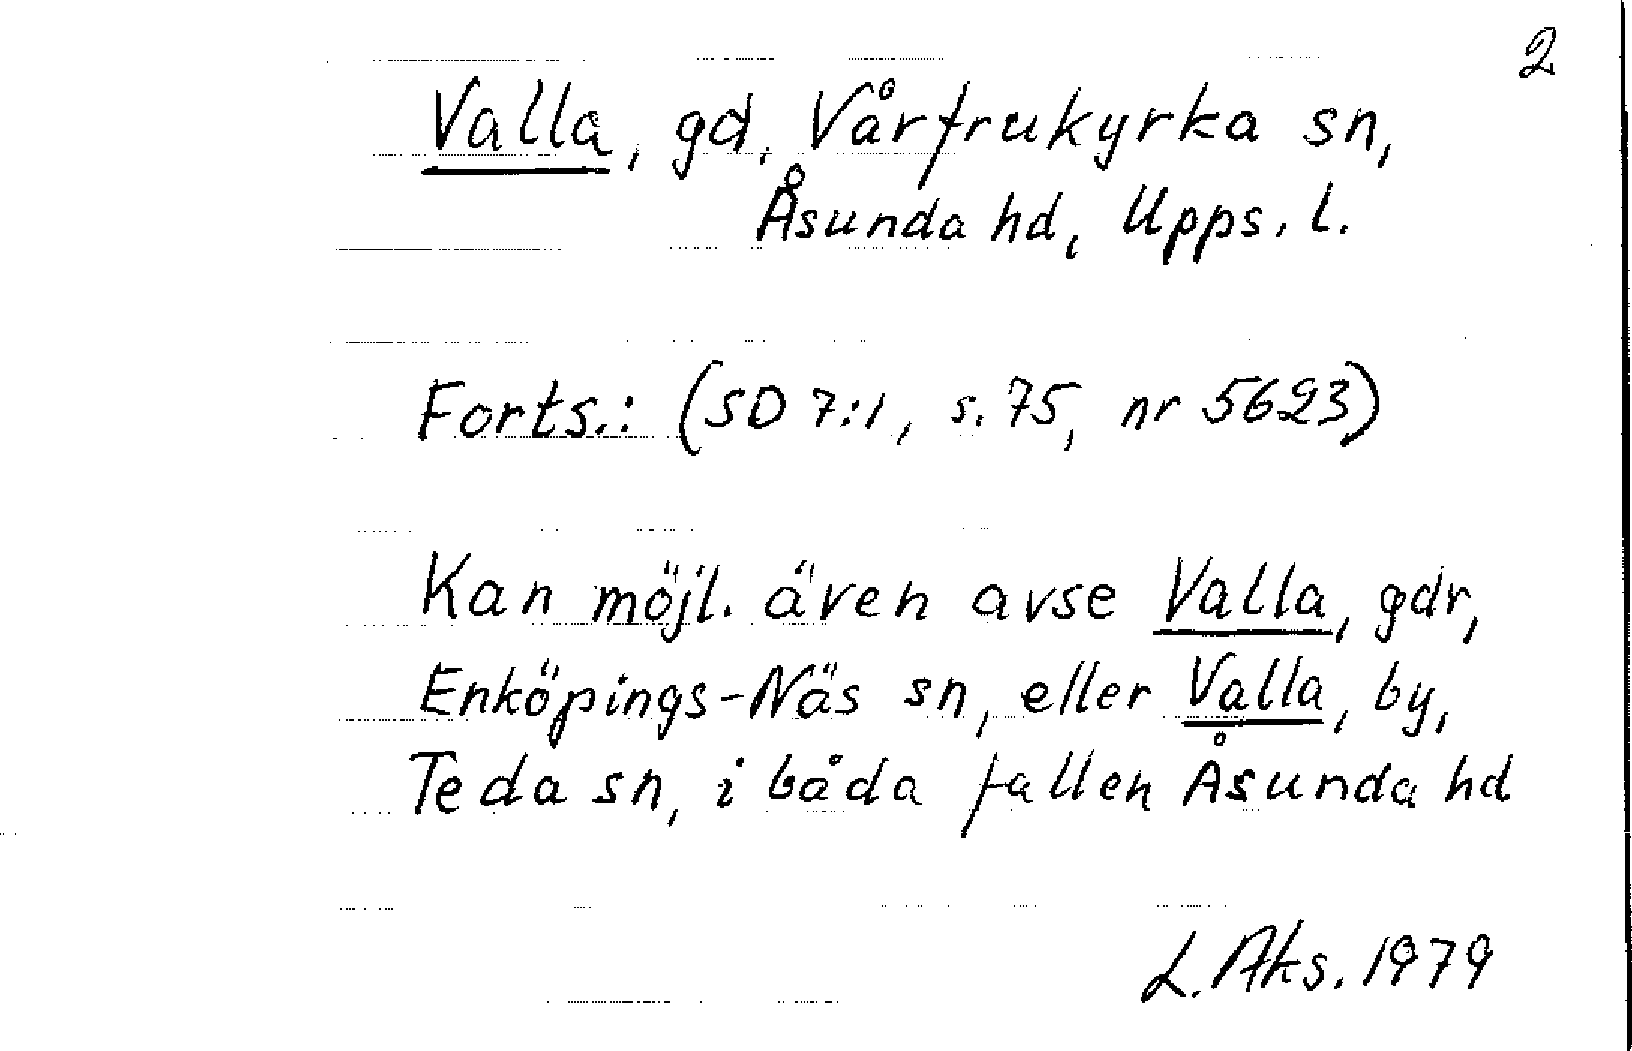 2
Valla, gd, Vårfrukyrka sn,
Åsunda hd, Upps. l.
Forts.: (SD 7:1, s. 75, nr 5623)
Kan möjl. även avse Valla, gdr,
Enköpings-Näs sn, eller Valla, by,
Teda sn, i båda fallen Åsunda hd
L. Aks. 1979